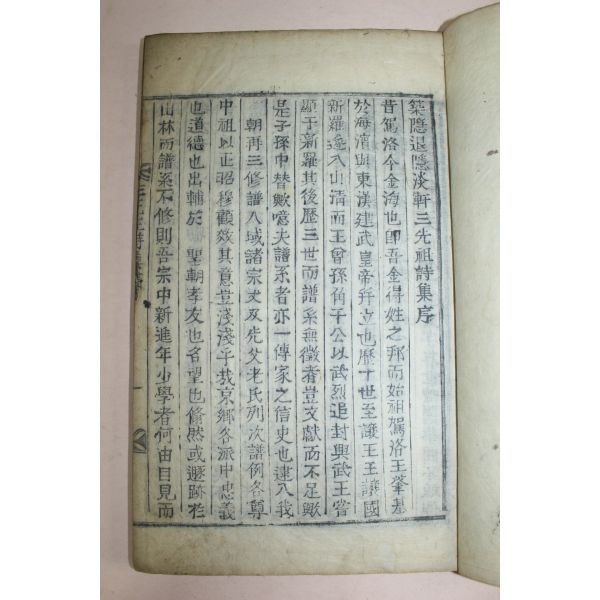 築隱退隱淡軒三先祖詩集序
昔駕洛今金海也卽吾金得姓之邦而始祖駕洛王肇基
於海濱與東漢建武皇帝幷立也歷十世至讓王王讓國
新羅遂入山淸而王曾孫角干公以武烈追封興武王嘗
顯于新羅其後歷三世而譜系無徵者豈文獻而不足歟
是子孫中替歟噫夫譜系者亦一傳家之信史也逮入我
朝再三修譜八域諸宗丈及先父老氏列次譜例各尊
中祖以正昭穆顧效其意豈淺淺乎哉京鄕各派中忠義
也道德也出輔於 聖朝孝友也名望也脩然或遯跡於
山林而譜系不修則吾宗中新進年少學者何由目見而